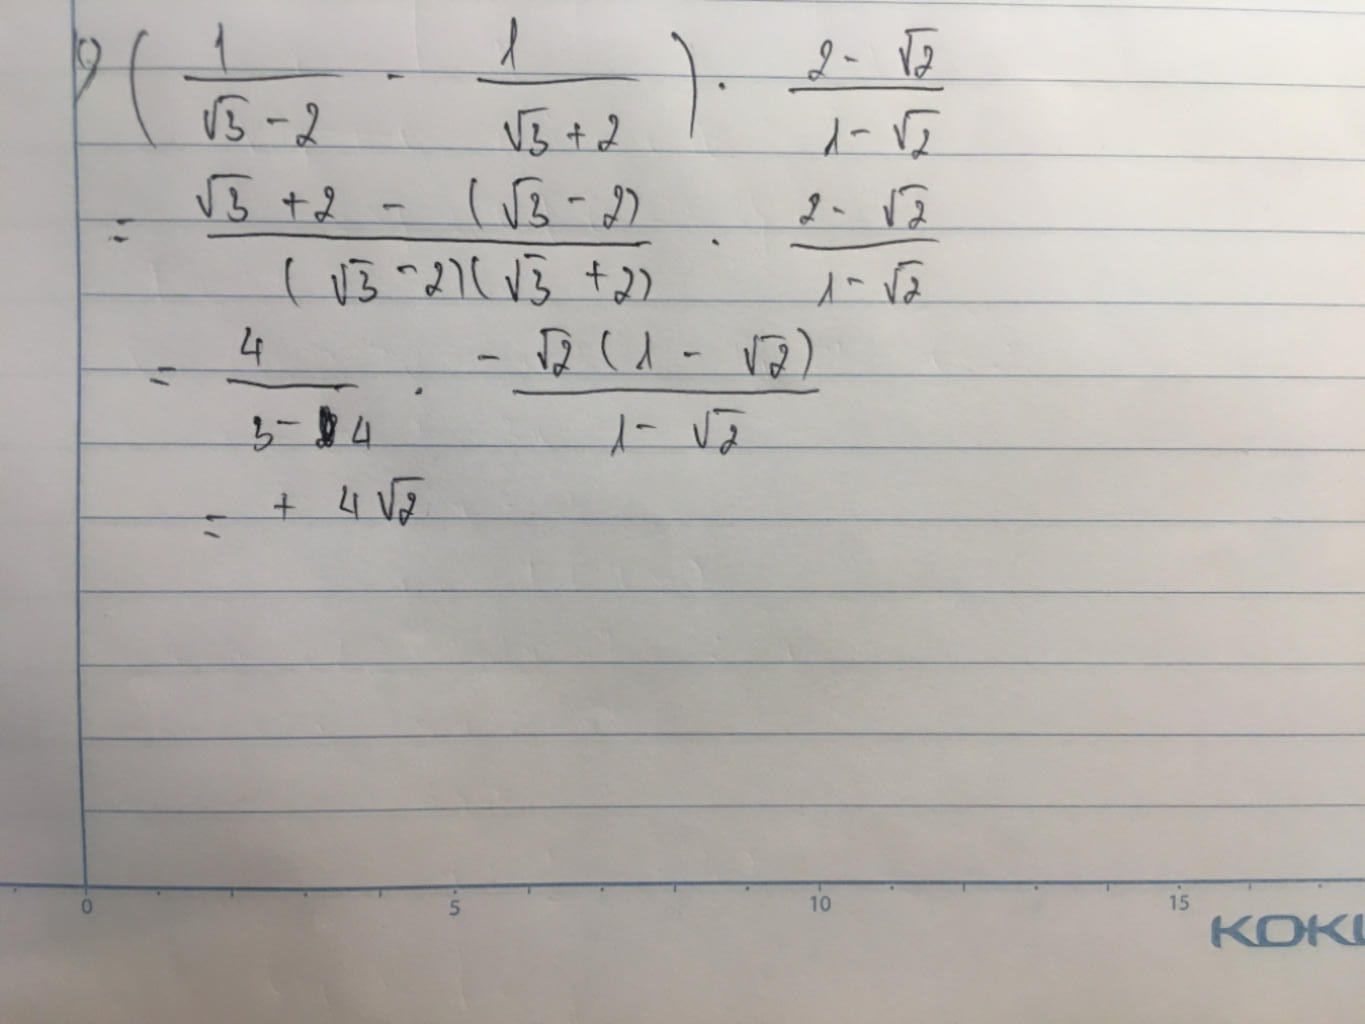 ) ( 1/(√3 - 2) - 1/(√3 + 2) ) . (2 - √2)/(1 - √2)
= (√3 + 2 - (√3 - 2))/((√3 - 2)(√3 + 2)) . (2 - √2)/(1 - √2)
= 4/(3 - 4) . - √2 (1 - √2)/(1 - √2)
= + 4√2
0 5 10 15